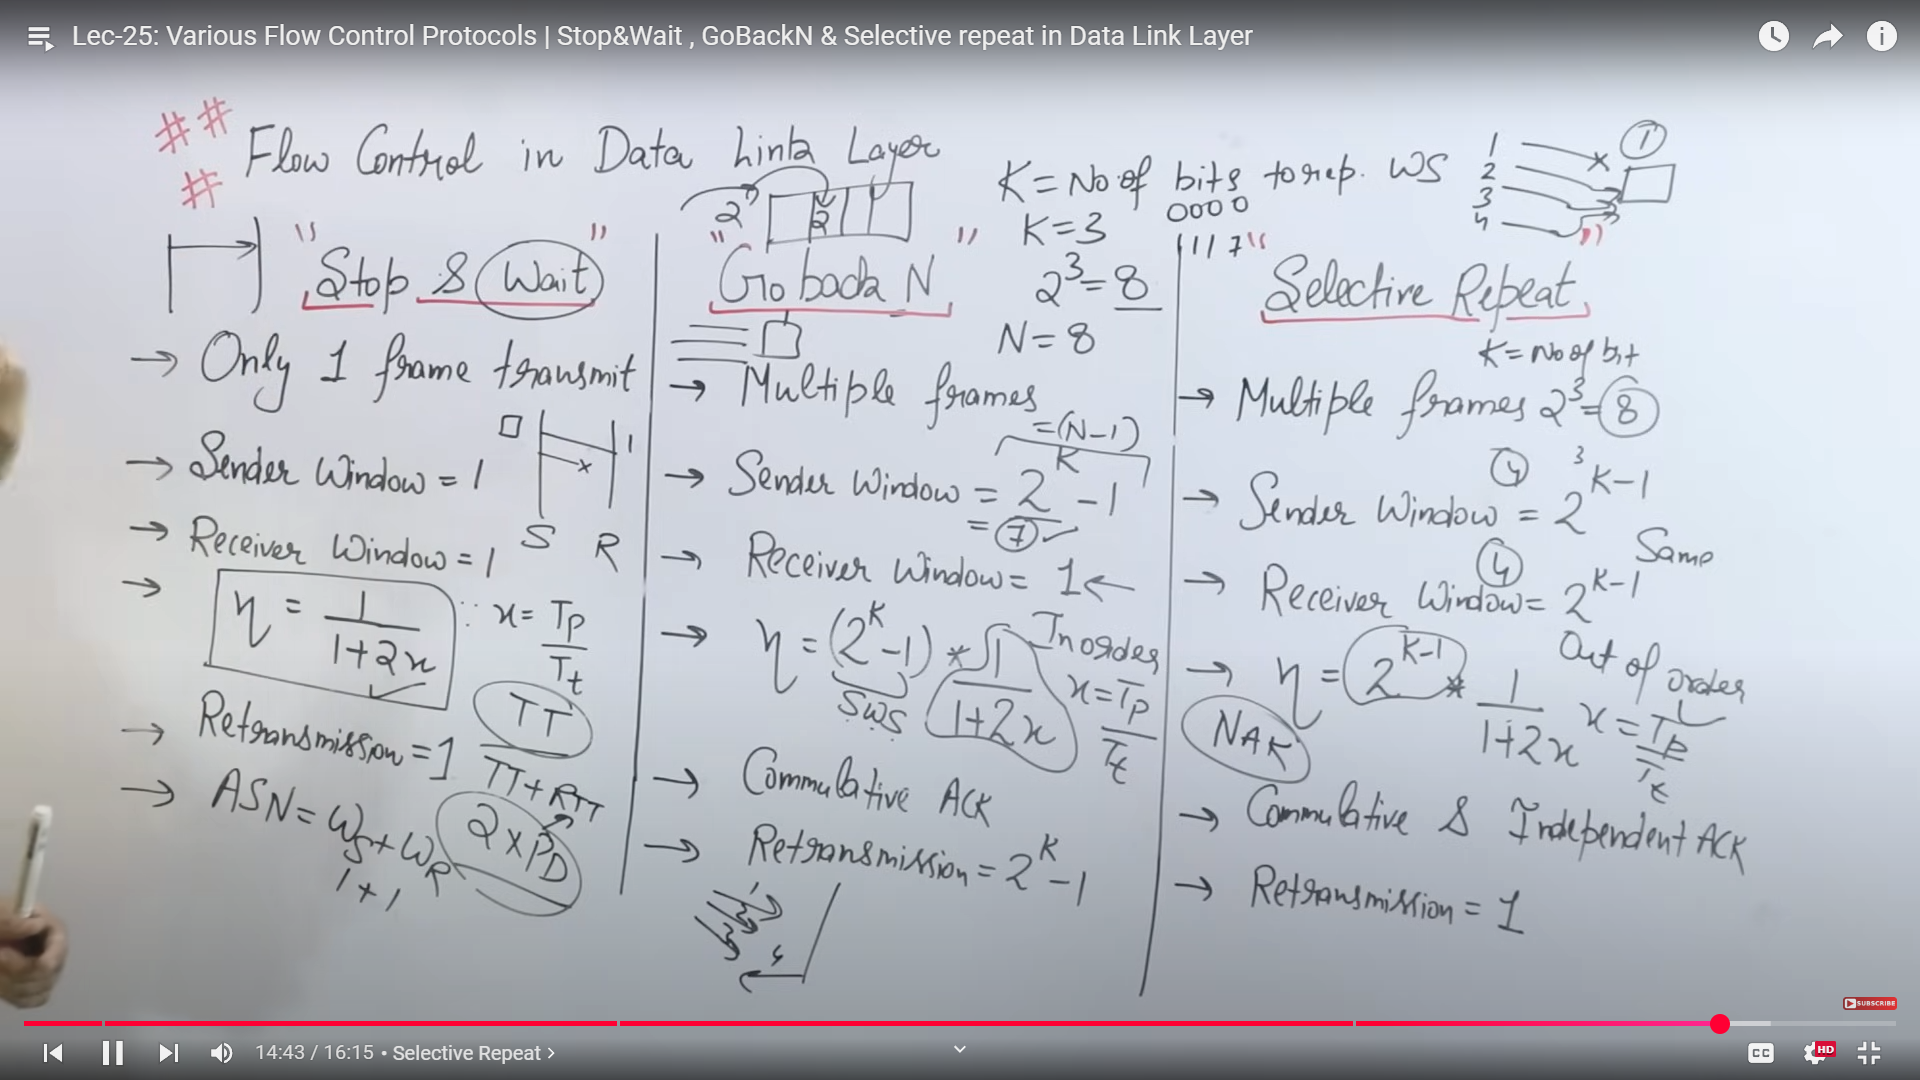 Lec-25: Various Flow Control Protocols | Stop&Wait , GoBackN & Selective repeat in Data Link Layer
# # #
Flow Control in Data Link Layer
K = No of bits to rep. WS
0000
1111
7
K = 3
2^3 = 8
N = 8
1
2
3
4
1
2
2
"Stop & Wait"
→ Only 1 frame transmit
→ Sender Window = 1
1
S R
→ Receiver Window = 1
→ η = 1/(1+2x) ∵ x = Tp/Tt
→ Retransmission = 1
TT
TT + RTT
2 x PD
→ ASN = Ws + WR
1 + 1
"Go back N"
→ Multiple frames
= (N-1)
→ Sender Window = 2^K - 1
= 7
→ Receiver Window = 1 ←
→ η = (2^K - 1) * 1/(1+2x)
SWS
In order
x = Tp/Tt
→ Commulative ACK
→ Retransmission = 2^K - 1
"Selective Repeat"
K = No of bit
→ Multiple frames 2^3 = 8
4 3
→ Sender Window = 2^K-1
Same
4
→ Receiver Window = 2^K-1
Out of order
→ η = 2^K-1 * 1/(1+2x)
x = Tp/Tt
NAK
→ Commulative & Independent ACK
→ Retransmission = 1
SUBSCRIBE
14:43 / 16:15 • Selective Repeat >
CC
HD